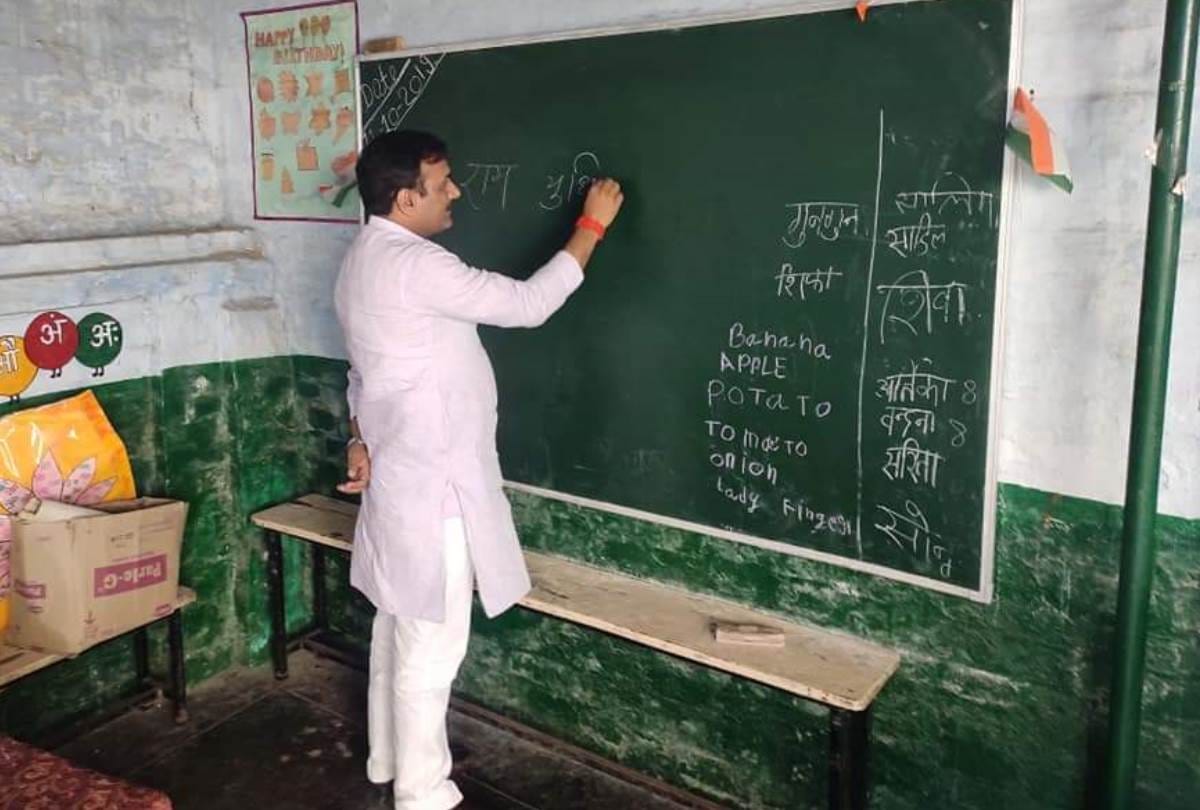 HAPPY
BIRTHDAY!
Date
10-2019
राम
गुनगुन
शिफा
Banana
APPLE
POTaTO
TOmaTO
onion
Lady Finger
साहिल
शिवा
वन्दना 8
सरिता
औ
अं
अः
Parle-G